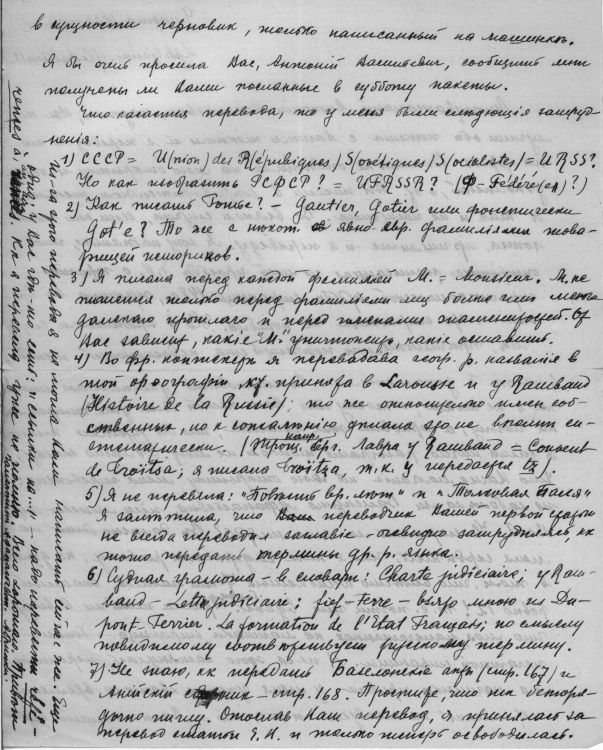 в сущности черновик, только написанный на машинке.
Я бы очень просила Вас, Антоний Васильевич, сообщить мне
получены ли Вами посланные в субботу пакеты.
Что касается перевода, то у меня были следующія затруд-
ненія:
1) СССР = U(nion) des R(épubiques) S(ovétiques) S(ocialistes) = URSS.
Но как изобразить РСФСР? = UFRSSR? (Ф-Fédéré(es)?)
2) Как писать Готье? - Gautier, Gotier или фонетически
Got'e? То же с явно евр. фамиліями това-
рищей историков.
3) Я писала перед каждой фамиліей М. = Monsieur. М. не
пишется только перед фамиліями лиц более или менее
далекаго прошлаго и перед именами знаменитостей. От
Вас зависит, какіе М. уничтожить, какіе оставить.
4) Во фр. контексте я передавала геогр. р. названія в
той орѳографіи, кт. принята в Larousse и у Rambaud
(Histoire de la Russie); то же относительно имен соб-
ственных, но к сожалению делала это не вполне си-
стематически. (напр. Троиц. Серг. Лавра у Rambaud = Couvent
de Troitsa; я писала Troitza, т.к. ц передается tz).
5) Я не перевела: "Повесть вр. лет" и "Толковая Палея"
Я заметила, что переводчик Вашей первой статьи
не всегда переводил заглавие - очевидно затруднялся, кк
точно передать термины др. р. языка.
6) Судная грамота - в словаре: Charte judiciaire; у Ram-
baud - Lettre judiciaire; fief-terre - взято мною из Du-
pont Ferrier. La formation de l'Etat Français; по смыслу
повидимому соответствует русскому термину.
7) Не знаю, кк передать (стр. 167) и
- стр. 168. Простите, что так беспоря-
дочно пишу. Отослав Вам перевод, я принялась за
перевод статьи Е.И. и только теперь освободилась.
из-за этого перевода я не могла Вам написать сейчас же. Еще
одно, у Вас где-то есть: "ссылки на..." - надо